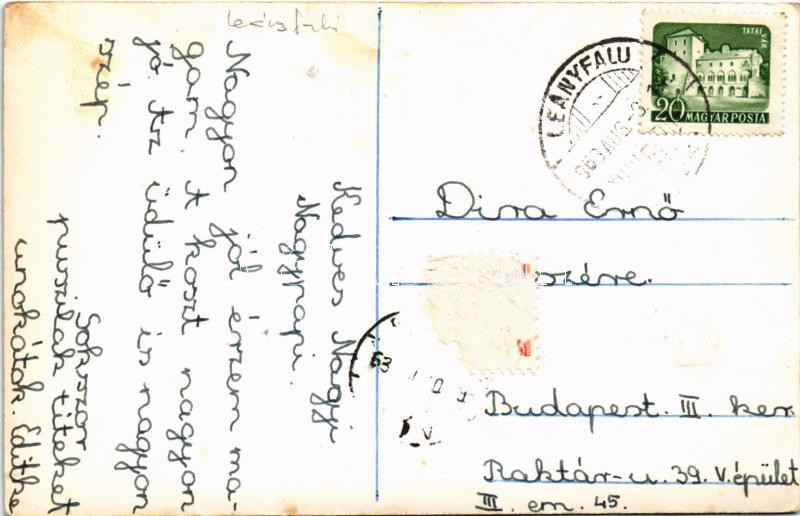 Leányfalu
Kedves Nagyi
Nagypapi.
Nagyon jól érzem ma-
gam. A koszt nagyon
jó. Az üdülő is nagyon
szép.
Sokszor
puszilak titeket
unokátok. Editke
LEÁNYFALU
963 AUG
TATAI VÁR
20 MAGYAR POSTA
Dira Ernő
szére.
63
Budapest. III. ker.
Raktár-u. 39. V. épület
III. em. 45.